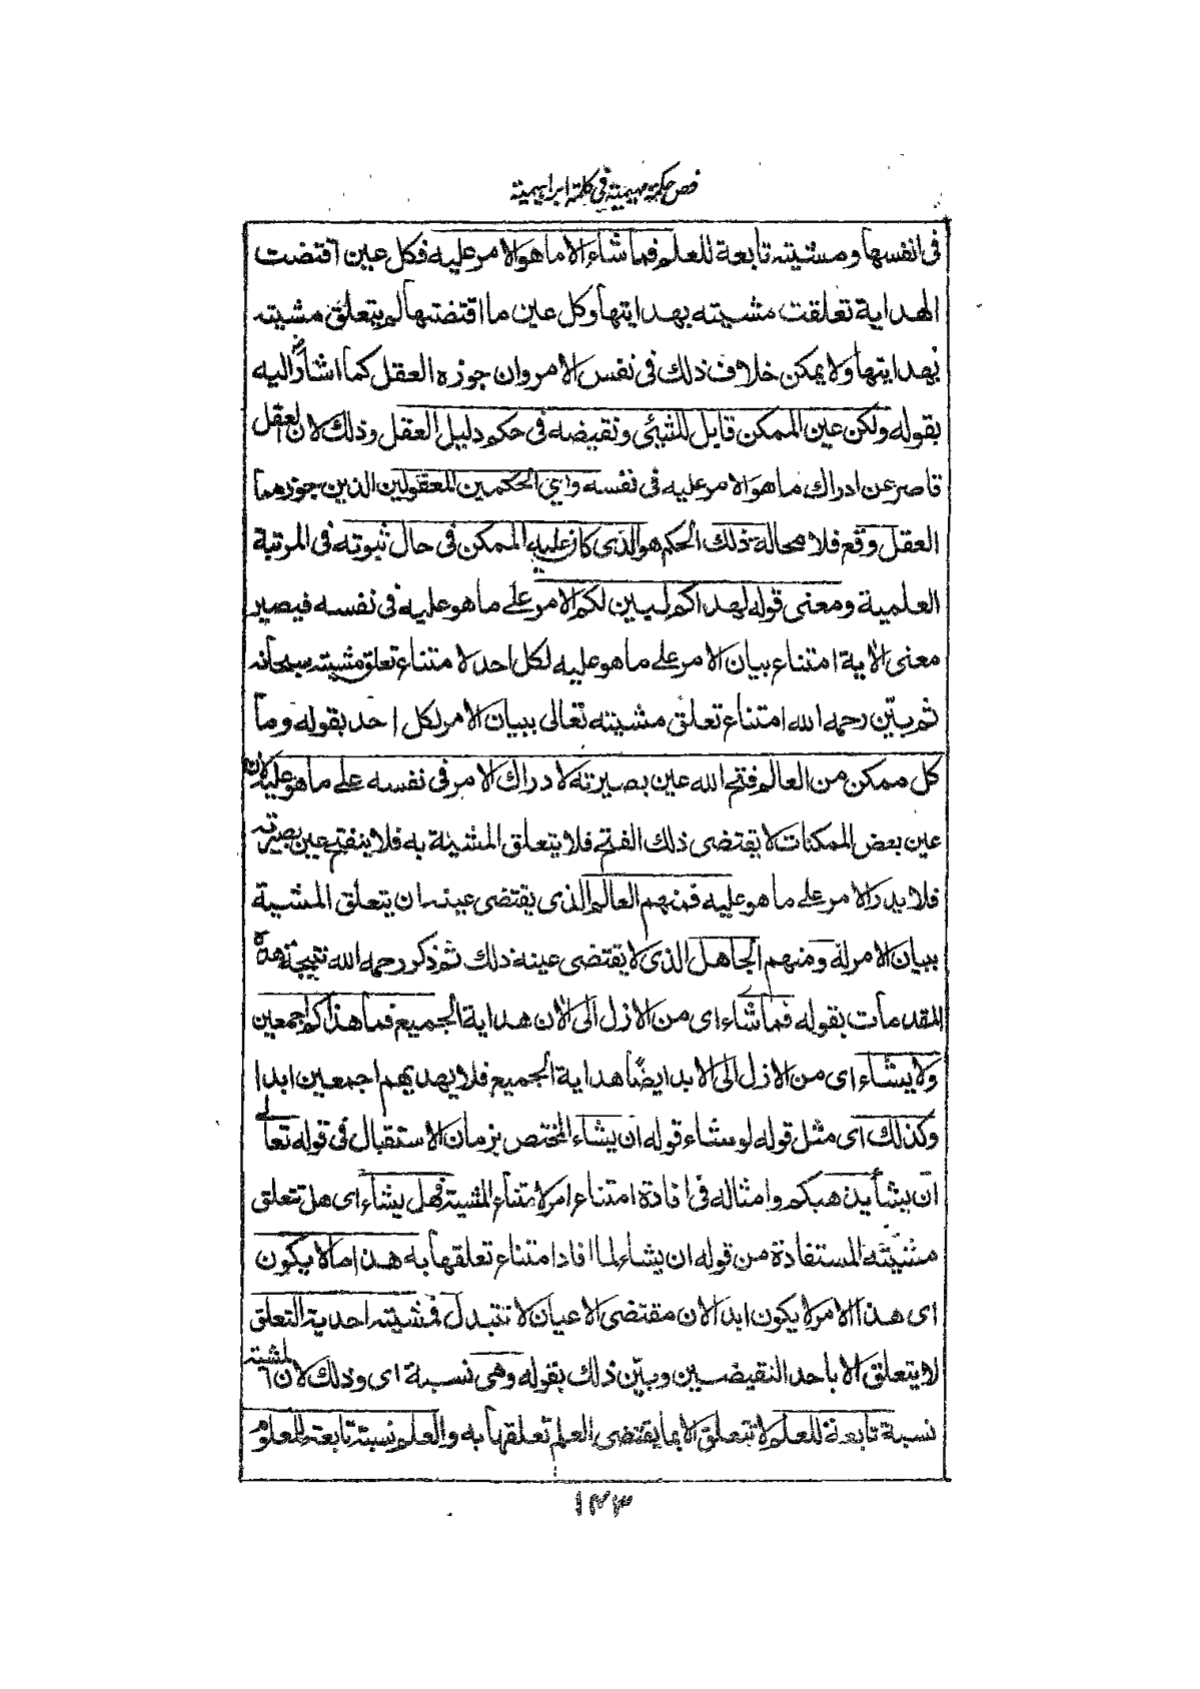 فص حكمة مهيمية في كلمة ابراهيمية
فى انفسها ومشيته تابعة للعلم فما شاء الا ما هو الامر عليه فكل عين اقتضت
الهداية تعلقت مشيته بهدايتها وكل عين ما اقتضتها لم يتعلق مشيته
بهدايتها ولا يمكن خلاف ذلك فى نفس الامر وان جوزه العقل كما اشار اليه
بقوله ولكن عين الممكن قابل للشئ ونقيضه فى حكم دليل العقل وذلك لان العقل
قاصر عن ادراك ما هو الامر عليه فى نفسه واي الحكمين المعقولين الذين جوزهما
العقل وقع فلا محالة ذلك الحكم هو الذى كان عليه الممكن فى حال ثبوته فى المرتبة
العلمية ومعنى قوله لهداكم لبين لكم الامر على ما هو عليه فى نفسه فيصير
معنى الاية امتناع بيان الامر على ما هو عليه لكل احد لامتناع تعلق مشيته سبحانه
ثم بيّن رحمه الله امتناع تعلق مشيته تعالى ببيان الامر لكل احد بقوله وما
كل ممكن من العالم فتح الله عين بصيرته لادراك الامر فى نفسه على ما هو عليه لان
عين بعض الممكنات لا يقتضى ذلك الفتح فلا يتعلق المشيئة به فلا ينفتح عين بصيرته
فلا يدرك الامر على ما هو عليه فمنهم العالم الذى يقتضى عينه ان يتعلق المشية
ببيان الامر له ومنهم الجاهل الذى لا يقتضى عينه ذلك ثم ذكر رحمه الله نتيجة هذه
المقدمات بقوله فما شاء اى من الازل الى الان هداية الجميع فما هداكم اجمعين
ولا يشاء اى من الازل الى الابد ايضًا هداية الجميع فلا يهديهم اجمعين ابدا
وكذلك اى مثل قوله لو شاء قوله ان يشاء المختص بزمان الاستقبال فى قوله تعالى
ان يشأ يذهبكم وامثاله فى افادة امتناع امر لامتناع المشية فهل يشاء اى هل تتعلق
مشيته المستفادة من قوله ان يشاء لما افاد امتناع تعلقها به هذا ما لا يكون
اى هذا الامر لا يكون ابدا لان مقتضى الاعيان لا تتبدل فمشيته احدية التعلق
لا يتعلق الا باحد النقيضين وبيّن ذلك بقوله وهى نسبة اى وذلك لان المشية
نسبة تابعة للعلم لا تتعلق الا بما يقتضى العلم تعلقها به والعلم نسبة تابعة للمعلوم
١٢٣